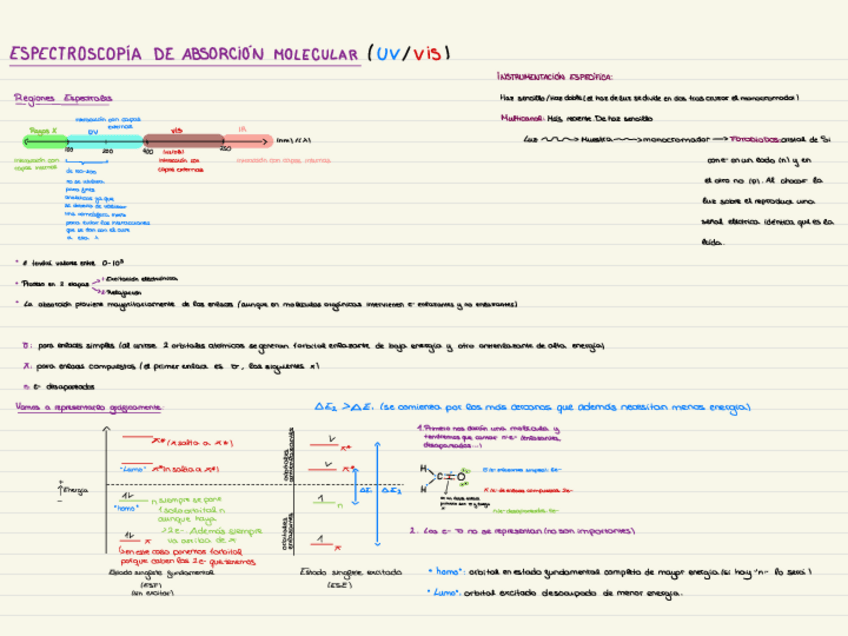 ESPECTROSCOPÍA DE ABSORCIÓN MOLECULAR (UV/VIS)
INSTRUMENTACIÓN ESPECÍFICA:
Regiones Espectrales
Haz sencillo/Haz doble (el haz de luz se divide en dos tras cruzar el monocromador)
Multicanal: Más reciente. De haz sencillo
Luz → Muestra → monocromador → Fotodiodos: cristal de Si
con e- en un lado (n) y en
el otro no (p). Al chocar la
luz sobre el reproduce una
señal eléctrica idéntica que es la
leída.
interacción con capas
externas
Rayos X UV VIS IR
100 200 400 750 (nm) // λ)
interacción con
capas internas
interacción con
capas externas
interacción con capas internas
* ε tendrá valores entre 0-10⁵
* Proceso en 2 etapas
1. Excitación electrónica
2. Relajación
* La absorción proviene mayoritariamente de los enlaces (aunque en moléculas orgánicas intervienen e- enlazantes y no enlazantes)
σ: para enlaces simples (al unirse 2 orbitales atómicos se generan 1 orbital enlazante de baja energía y otro antienlazante de alta energía)
π: para enlaces compuestos (el primer enlace es σ, los siguientes π)
n: e- desapareados
Vamos a representarlo gráficamente:
ΔE₂ > ΔE₁ (se comienza por los más cercanos que además necesitan menos energía)
π* (π salta a π*)
"Lumo" π* (n salta a π*)
Energía
n siempre se pone
1 solo orbital n
aunque haya
>2 e-. Además siempre
va arriba de π
"homo"
π
(en este caso ponemos 1 orbital
porque caben los 2 e- que tenemos
Estado singlete fundamental
(ESF)
(sin excitar)
orbitales
antienlazantes
orbitales
enlazantes
π*
π*
n
π
ΔE₁ ΔE₂
Estado singlete excitado
(ESE)
1. Primero nos darán una molécula y
tendremos que contar n° e- (enlazantes,
desapareados...)
H
H
C=O
2. Los e- σ no se representan (no son importantes)
* "homo": orbital en estado fundamental completo de mayor energía (si hay "n" lo será)
* "Lumo": orbital excitado desocupado de menor energía.